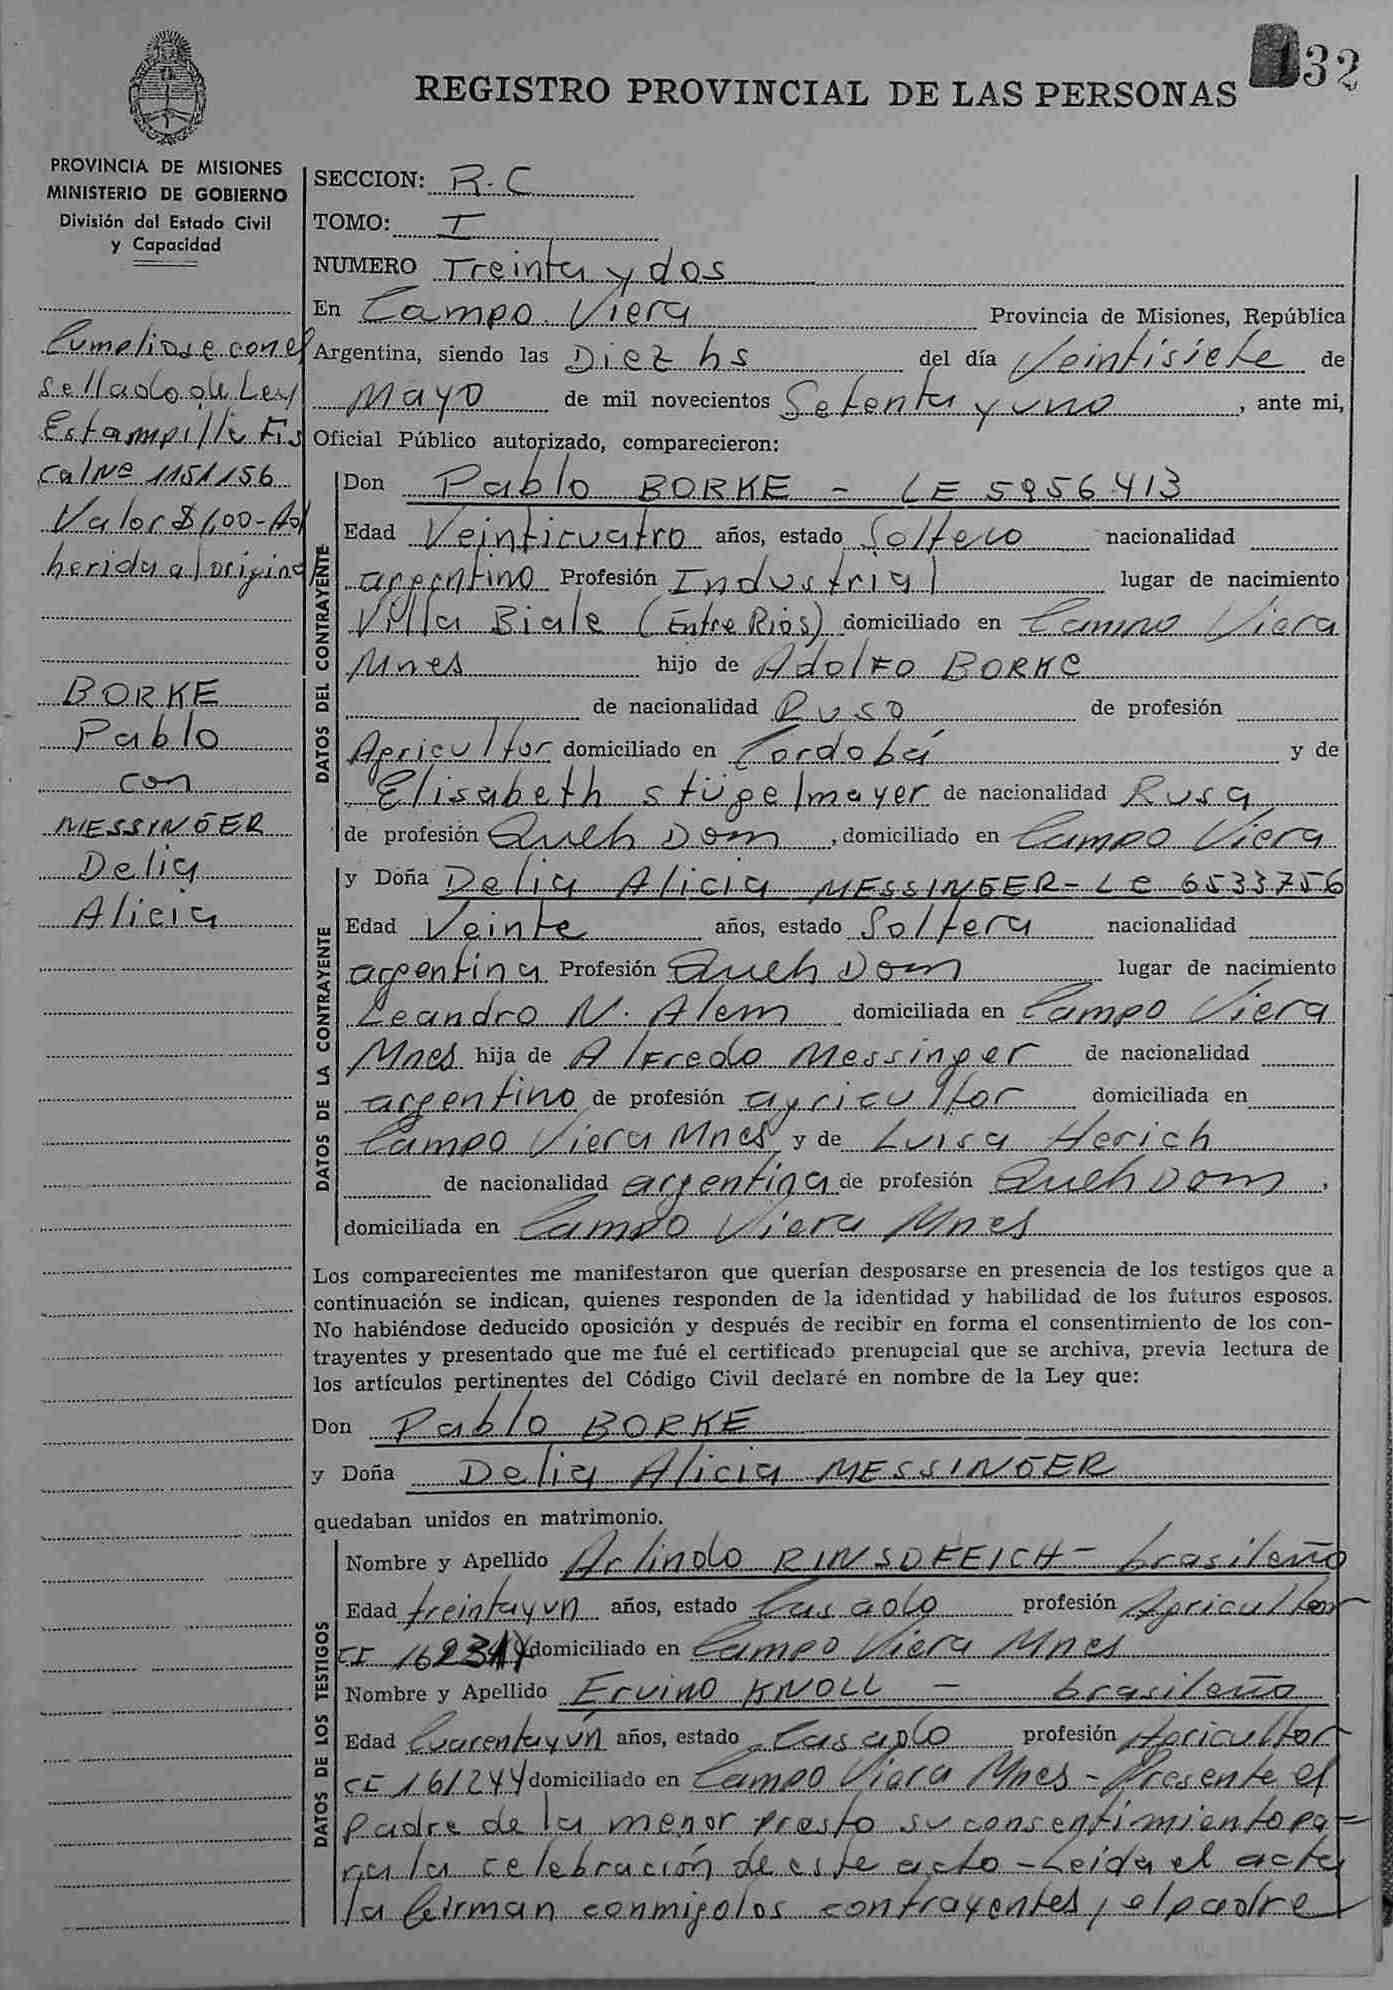 132
REGISTRO PROVINCIAL DE LAS PERSONAS
PROVINCIA DE MISIONES
MINISTERIO DE GOBIERNO
División del Estado Civil
y Capacidad
Cumpliose con el
sellado de Ley
Estampilla Fis
cal Nº 1151156
Valor $ 1,00 - Ad
herida al origina
BORKE
Pablo
con
MESSINGER
Delia
Alicia
SECCION: R.C
TOMO: I
NUMERO Treinta y dos
En Campo Viera Provincia de Misiones, República
Argentina, siendo las Diez hs del día Veintisiete de
Mayo de mil novecientos Setenta y uno, ante mi,
Oficial Público autorizado, comparecieron:
DATOS DEL CONTRAYENTE
Don Pablo BORKE - LE 5956413
Edad Veinticuatro años, estado Soltero nacionalidad
argentino Profesión Industrial lugar de nacimiento
Villa Biale (Entre Rios) domiciliado en Campo Viera
Mnes hijo de Adolfo BORKE
de nacionalidad Ruso de profesión
Agricultor domiciliado en Cordobá y de
Elisabeth Stügelmayer de nacionalidad Rusa
de profesión Queh Dom, domiciliado en Campo Viera
DATOS DE LA CONTRAYENTE
y Doña Delia Alicia MESSINGER - LC 6533756
Edad Veinte años, estado Soltera nacionalidad
argentina Profesión Queh Dom lugar de nacimiento
Leandro N. Alem domiciliada en Campo Viera
Mnes hija de Alfredo Messinger de nacionalidad
argentino de profesión agricultor domiciliada en
Campo Viera Mnes y de Luisa Herich
de nacionalidad argentina de profesión Queh Dom,
domiciliada en Campo Viera Mnes
Los comparecientes me manifestaron que querían desposarse en presencia de los testigos que a
continuación se indican, quienes responden de la identidad y habilidad de los futuros esposos.
No habiéndose deducido oposición y después de recibir en forma el consentimiento de los con-
trayentes y presentado que me fué el certificado prenupcial que se archiva, previa lectura de
los artículos pertinentes del Código Civil declaré en nombre de la Ley que:
Don Pablo BORKE
y Doña Delia Alicia MESSINGER
quedaban unidos en matrimonio.
DATOS DE LOS TESTIGOS
Nombre y Apellido Arlindo - brasileño
Edad treinta y un años, estado Casado profesión Agricultor
CI domiciliado en Campo Viera Mnes
Nombre y Apellido Ervino KNOLL - brasileño
Edad Cuarenta y ún años, estado Casado profesión Agricultor
CI 161244 domiciliado en Campo Viera Mnes - Presente el
padre de la menor presto su consentimiento pa=
ra la celebración de este acto - Leida el acta
la firman conmigo los contrayentes, el padre